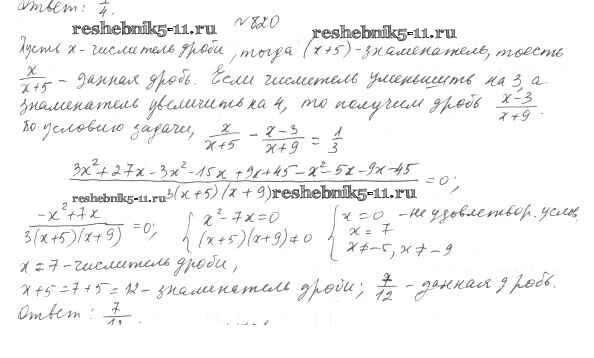 Ответ: 1/4.
reshebnik5-11.ru
№820
reshebnik5-11.ru
Пусть x - числитель дроби, тогда (x+5) - знаменатель, то есть
x/(x+5) - данная дробь. Если числитель уменьшить на 3, а
знаменатель увеличить на 4, то получим дробь (x-3)/(x+9).
По условию задачи, x/(x+5) - (x-3)/(x+9) = 1/3
(3x²+27x-3x²-15x+9x+45-x²-5x-9x-45)/(3(x+5)(x+9)) = 0;
reshebnik5-11.ru reshebnik5-11.ru
(-x²+7x)/(3(x+5)(x+9)) = 0; { x²-7x=0 { x=0 - не удовлетвор. услов.
(x+5)(x+9)≠0 x=7
x≠-5, x≠-9
x=7 - числитель дроби,
x+5=7+5=12 - знаменатель дроби; 7/12 - данная дробь.
Ответ: 7/12